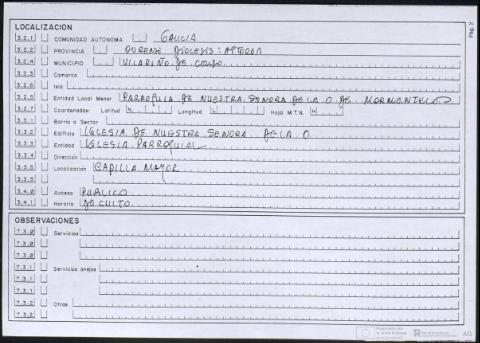 LOCALIZACION
3.2.1 COMUNIDAD AUTONOMA GALICIA
3.2.2 PROVINCIA OURENSE DIOCESIS: ASTORGA
3.2.4 MUNICIPIO VILARIÑO DE CONSO
3.2.3 Comarca
3.2.6 Isla
3.2.5 Entidad Local Menor PARROQUIA DE NUESTRA SENORA DE LA O DE MORMENTELOS
3.2.7 Coordenadas: Latitud N Longitud Hoja M.T.N. H
3.3.1 Barrio o Sector
3.3.2 Edificio IGLESIA DE NUESTRA SENORA DE LA O
3.3.3 Entidad IGLESIA PARROQUIAL
3.3.4 Dirección
3.3.5 Localización CAPILLA MAYOR
3.3.5
3.4.0 Acceso PUBLICO
3.4.1 Horario DE CULTO
OBSERVACIONES
7.3.0 Servicios
7.3.0
7.3.0
7.3.1 Servicios anejos
7.3.1
7.3.1
7.3.2 Otros
7.3.2
Pág. 2